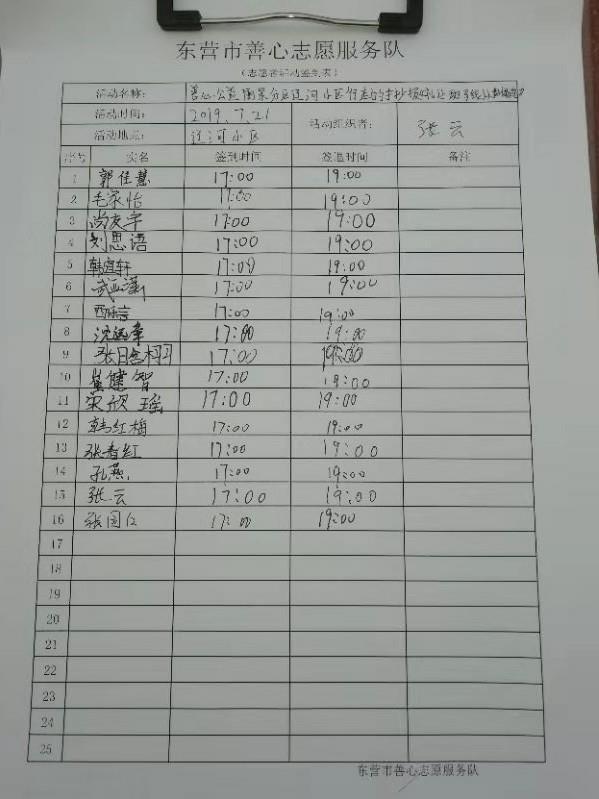 东营市善心志愿服务队
（志愿者活动签到表）
活动名称： 善心公益 辽河小区
活动时间： 2019.7.21 活动组织者： 张云
活动地点： 辽河小区
序号 实名 签到时间 签退时间 备注
1 郭佳慧 17:00 19:00
2 毛家怡 17:00 19:00
3 尚友宇 17:00 19:00
4 刘思语 17:00 19:00
5 韩宜轩 17:00 19:00
6 武 17:00 19:00
7 17:00 19:00
8 沈 17:00 19:00
9 张 17:00 19:00
10 崔建智 17:00 19:00
11 宋欣瑶 17:00 19:00
12 韩红梅 17:00 19:00
13 张春红 17:00 19:00
14 孔燕 17:00 19:00
15 张云 17:00 19:00
16 张国仁 17:00 19:00
17
18
19
20
21
22
23
24
25
东营市善心志愿服务队